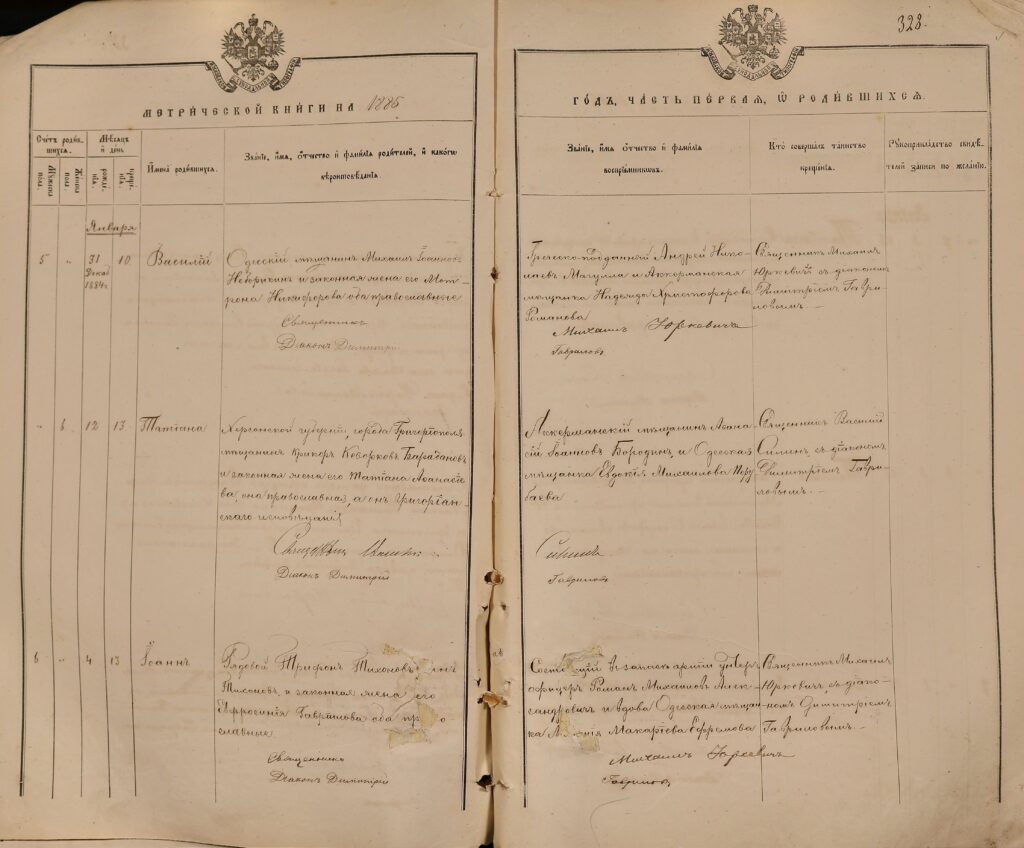 328.
МЕТРИЧЕСКОЙ КНИГИ НА 1885
ГОДЪ, ЧАСТЬ ПЕРВАЯ, Ѡ РОДИВШИХСЯ.
Счетъ родившихся.
Мужеска пола.
Женска пола.
Мѣсяцъ и день
рожденія.
крещенія.
Имена родившихся.
Званіе, имя, отчество и фамилія родителей, и какого
вѣроисповѣданія.
Званіе, имя отчество и фамилія
воспріемниковъ.
Кто совершалъ таинство
крещенія.
Рукоприкладство свидѣ-
телей записи по желанію.
Января
5 " 31 Декаб 1884 г. 10 Василій
Одесскій мѣщанинъ Михаилъ Іоанновъ
и законная жена его Мат-
рона Никифорова оба православные
Священникъ
Діаконъ Димитрій
Греческо-подданный Андрей Нико-
лаевъ и Аккерманская
мѣщанка Надежда Христофорова
Романова
Михаилъ Юркевичъ
Гавриловъ
Священникъ Михаилъ
Юркевичъ съ діакономъ
Димитріемъ Гаври-
ловымъ. —
" 6 12 13 Татіана
Херсонской губерніи, города Григоріополя
мѣщанинъ Кеворковъ
и законная жена его Татіана Аѳанасіе-
ва, она православная, а онъ Григоріан-
скаго исповѣданія
Діаконъ Димитрій
Аккерманскій мѣщанинъ Аѳана-
сій Іоанновъ Бородинъ и Одесская
мѣщанка Евдокія Михаилова
Силинъ
Гавриловъ
Священникъ Василій
Силинъ, съ діакономъ
Димитріемъ Гаври-
ловымъ. —
6 " 4 13 Іоаннъ
Рядовой Трифонъ Тихоновъ
Тихоновъ, и законная жена его
Евфросинія Гаврилова оба
славные
Священникъ
Діаконъ Димитрій
Состоящій въ запасѣ арміи унтеръ
офицеръ Романъ Михаиловъ Алек-
сандровичъ и вдова Одесская мѣщан-
ка Макаріева Ефремова
Михаилъ Юркевичъ
Гавриловъ
Священникъ Михаилъ
Юркевичъ съ діако-
номъ Димитріемъ
Гавриловымъ. —